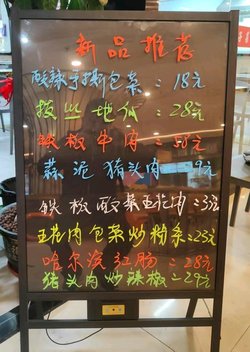 新品推荐
酸辣手撕包菜：18元
拔丝地瓜：28元
铁板牛肉：58元
蒜泥猪头肉：29元
铁板酸菜五花肉：35元
五花肉包菜炒粉条：25元
哈尔滨红肠：28元
猪头肉炒辣椒：29元